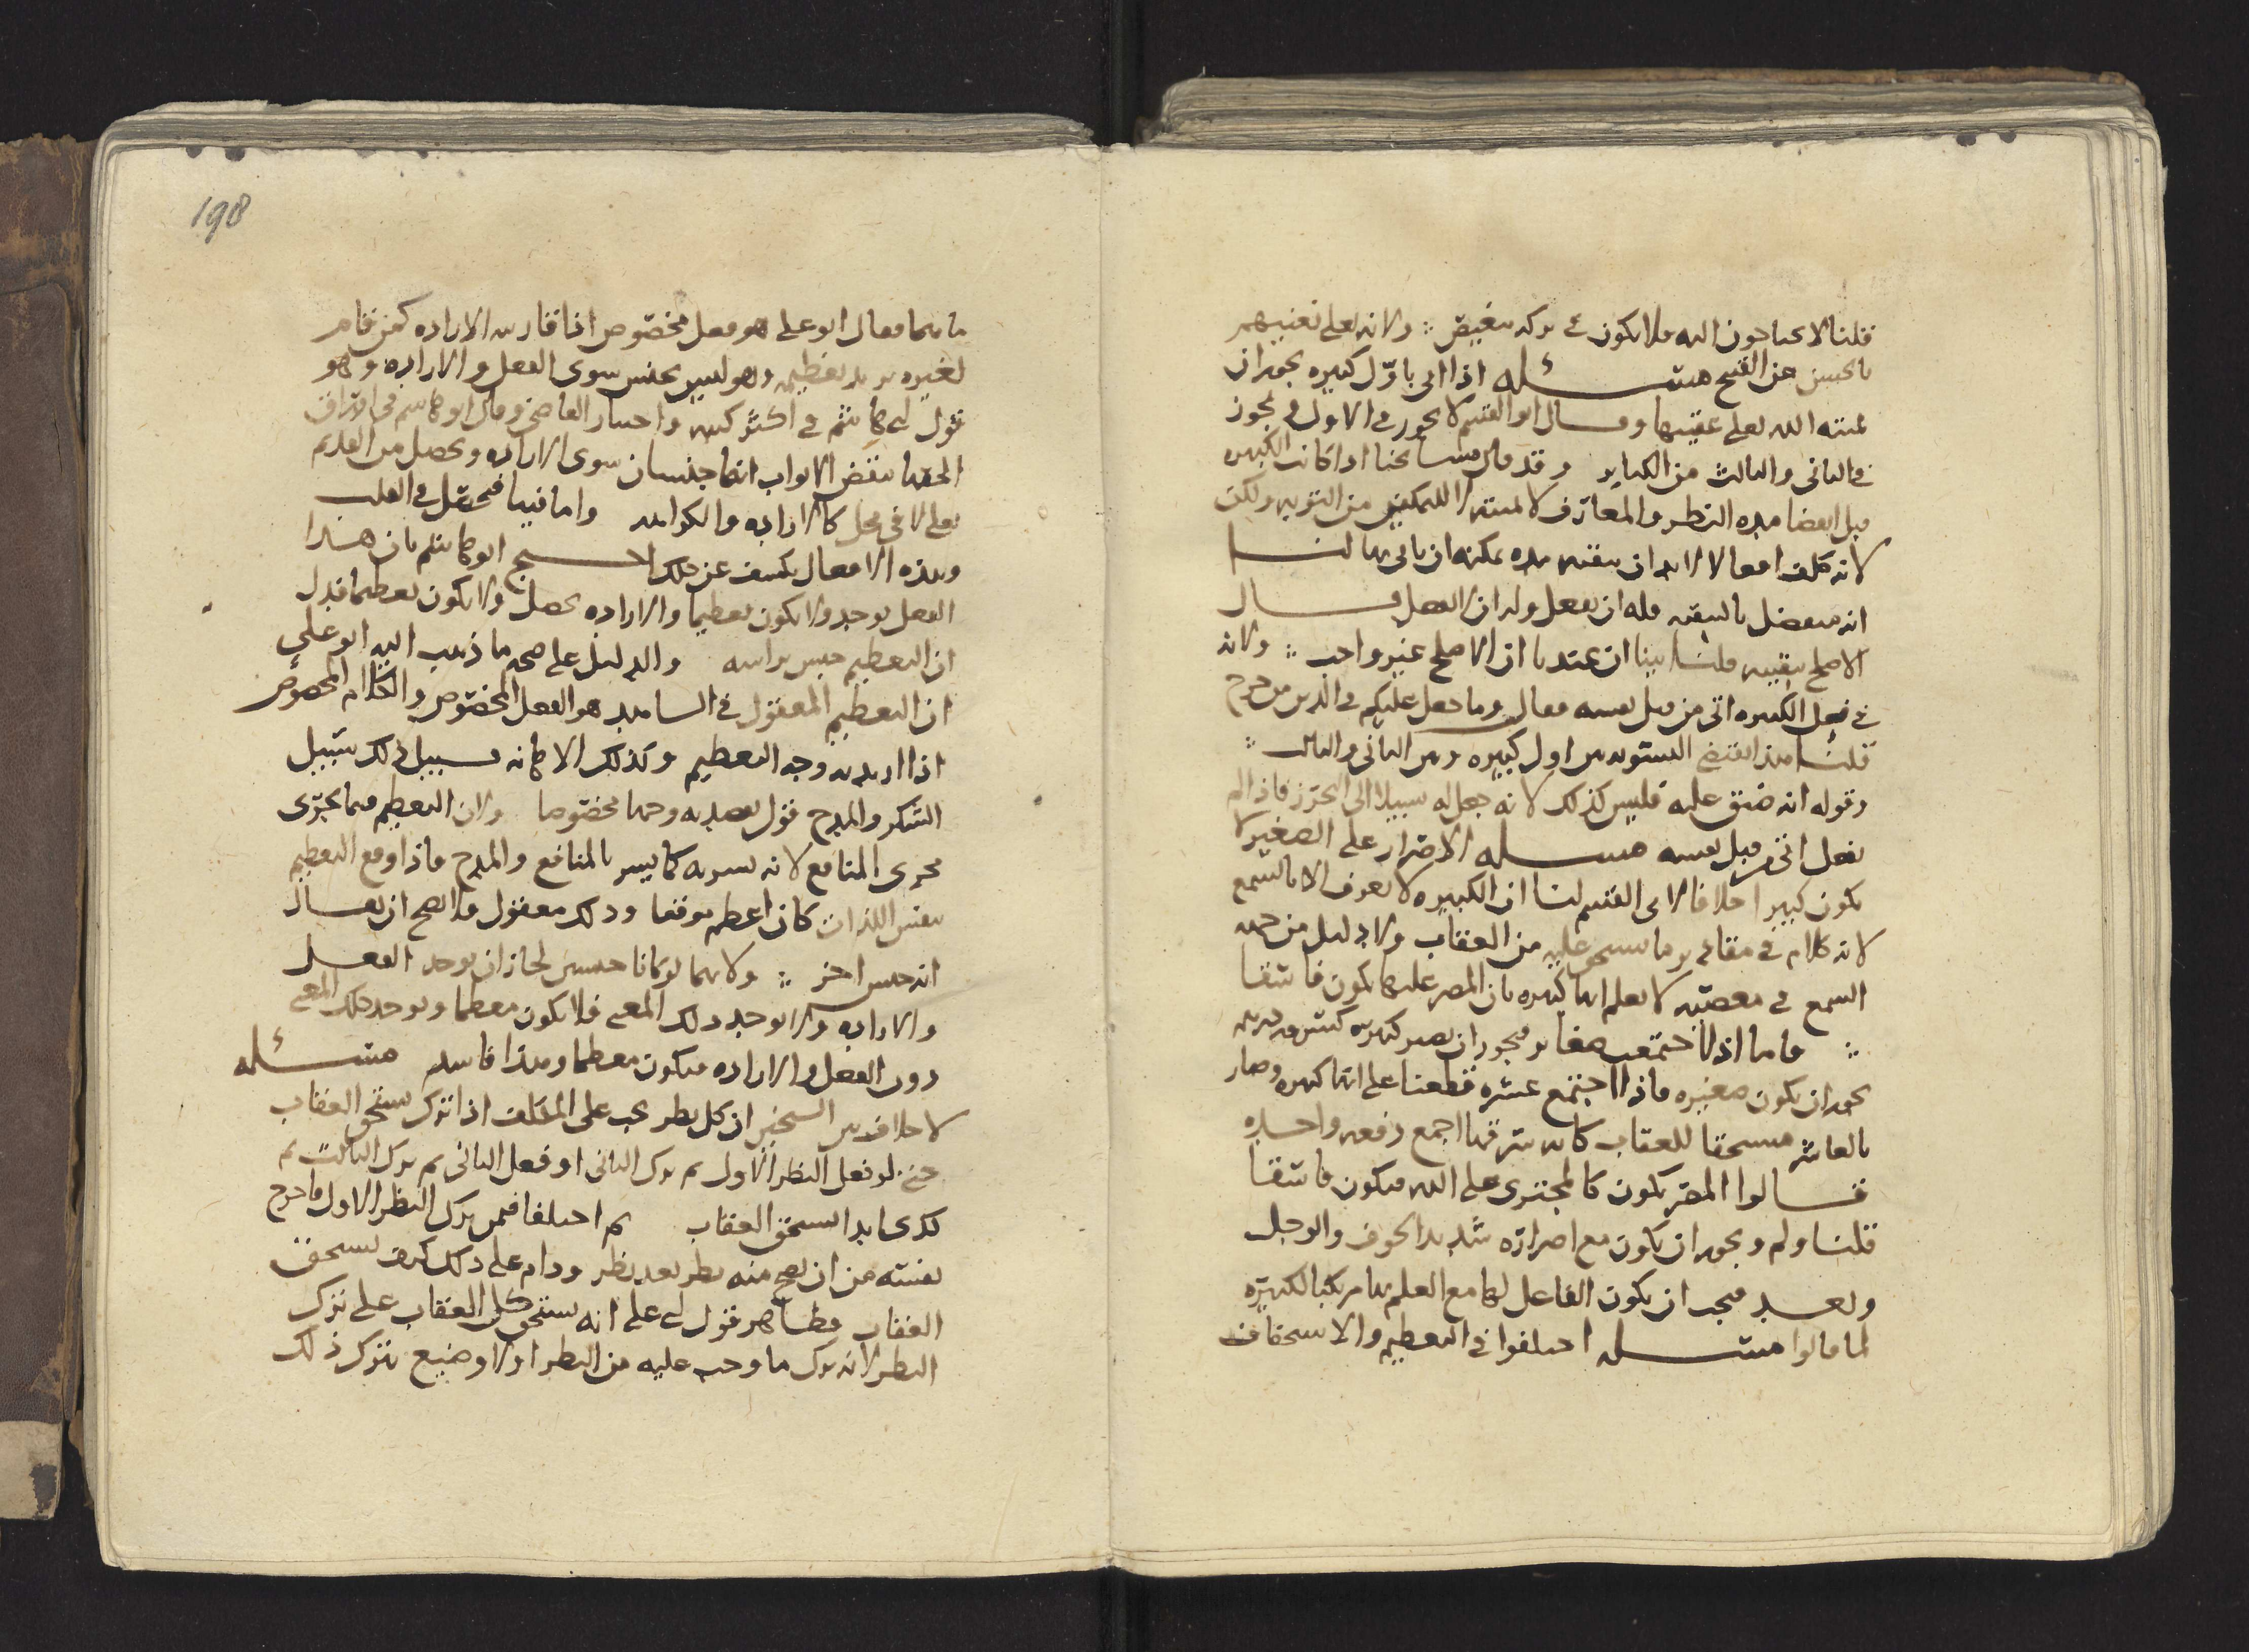 قلنا لا يحتاجون اليه فلا يكون في تركه تبغيض ؞ ولانه تعالى تغنيهم
بالحسن عن القبيح مسئله اذا اتى باوّل كبيره يجوز ان
يميته الله تعالى عقيبها وقال ابو القسم لا يجوز في الاول ويجوز
في الثاني والثالث من الكباير وقد قال مشايخنا اذا كانت الكبيره
قبل انقضا مده النظر والمعارف لا يميته لا للتمكين من التوبه ولكن
لانه كلف افعالا لا بد ان يبقيه مده يمكنه ان ياتي بها لنا
انه متفضل بالتبقيه فله ان يفعل وله ان لا يفعل قال
الاصلح تبقيته قلنا بينا ان عندنا ان الاصلح غير واجب ؞ ولانه
في فعل الكبيره اتى من قبل نفسه فقال وما جعل عليكم في الدين من حرج
قلنا هذا يقتضي التسويه بين اول كبيره وبين الثاني والثالث ؞
وقوله انه ضيق عليه فليس كذلك لانه جعل له سبيلا الى التحرز فاذا لم
يفعل اتى من قبل نفسه مسله الاصرار على الصغير لا
يكون كبير اخلافا لابي القسم لنا ان الكبيره لا تعرف الا بالسمع
لانه كلام في مقادير ما يستحق عليه من العقاب ولا دليل من جهه
السمع في معصيه لا يعلم انها كبيره بان المصر عليها يكون فاسقا
؞ فاما اذا اجتمعت صغاير فيجوز ان يصير كبيره كسرقه درهم
يجوز ان يكون صغيره فاذا اجتمع عشره قطعنا على انها كبيره وصار
بالعاشر مستحقا للعقاب كانه سرقها اجمع دفعه واحده
قالوا المصر يكون كالمجترى على الله فيكون فاسقا
قلنا ولم ويجوز ان يكون مع اصراره شديد الخوف والوجل
وبعد فيجب ان يكون الفاعل لها مع العلم بها مرتكبا لكبيره
لما قالوا مسئله اختلفوا في التعظيم والاستحقاق
198
ما هما فقال ابو علي هو فعل مخصوص اذا قارنه الاراده كمن قام
لغيره يريد تعظيمه وهو ليس بجنس سوى الفعل والاراده وهو
قول ابي هاشم في اكثر كتبه واختيار القاضي وقال ابو هاشم في
بنقض الابواب انهما جنسان سوى الاراده ويحصل من القديم
تعالى لا في محل كالاراده والكراهه واما فينا فيحصل في القلب
وهذه الافعال يكشف عن ذلك احتج ابو هاشم بان هذا
الفعل يوجد ولا يكون تعظيما والاراده تحصل ولا يكون تعظيما فدل
ان التعظيم جنس براسه والدليل على صحه ما ذهب اليه ابو علي
ان التعظيم المعقول في الشاهد هو الفعل المخصوص والكلام المخصوص
اذا اريد به وجه التعظيم وكذلك الاهانه سبيل ذلك سبيل
الشكر والمدح قول يقصد به وجها مخصوصا ولان التعظيم مما يجرى
مجرى المنافع لانه يسر به كما يسر بالمنافع والمدح فاذا وقع التعظيم
بنفس اللذات كان اعظم موقعا وذلك معقول فلا يصح ان يقال
انه جنس اخر ؞ ولانهما لو كانا جنسين لجاز ان يوجد الفعل
والاراده ولا يوجد ذلك المعنى فلا يكون معظما ويوجد ذلك المعنى
دون الفعل والاراده فيكون معظما وهذا فاسد مسئله
لا خلاف بين الشيخين ان كل نظر يجب على المكلف اذا ترك يستحق العقاب
حتى لو فعل النظر الاول ثم ترك الثاني او فعل الثاني ثم ترك الثالث ثم
كذى ابدا استحق العقاب ثم اختلفا فيمن ترك النظر الاول فاخرج
نفسه من ان يصح منه نظر بعد نظر ودام على ذلك كيف يستحق
العقاب فظاهر قول ابي علي انه يستحق كل العقاب على ترك
النظر لانه ترك ما وجب عليه من النظر اولا وضيع بترك ذلك